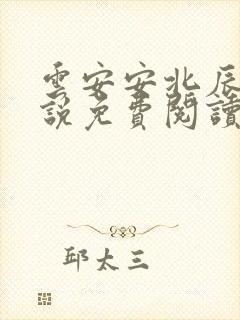 雲安安北辰
說免費閱讀
邱太三